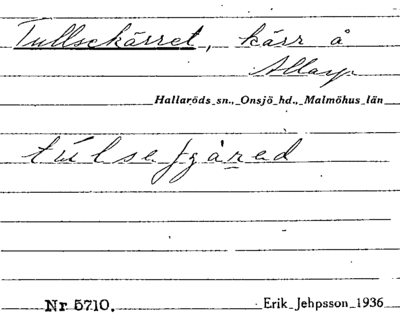 Tullsekärret, kärr å
Allarp
Hallaröds sn., Onsjö hd., Malmöhus län
túlse
Nr 5710. Erik Jehpsson 1936